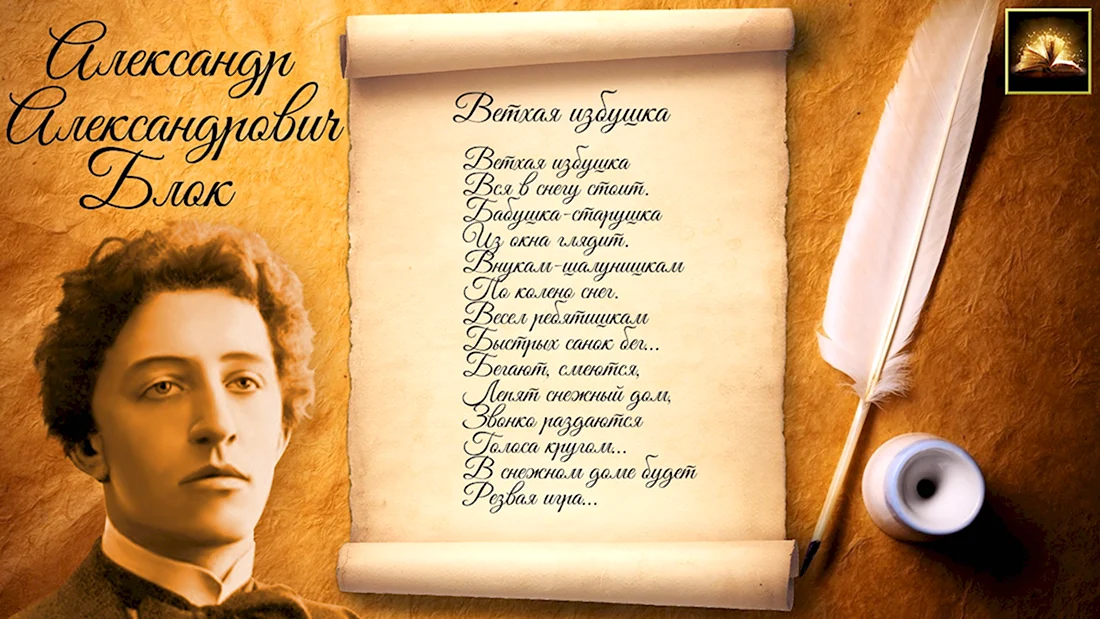 Александр
Александрович
Блок
Ветхая избушка
Ветхая избушка
Вся в снегу стоит.
Бабушка-старушка
Из окна глядит.
Внукам-шалунишкам
По колено снег.
Весел ребятишкам
Быстрых санок бег...
Бегают, смеются,
Лепят снежный дом,
Звонко раздаются
Голоса кругом...
В снежном доме будет
Резвая игра...